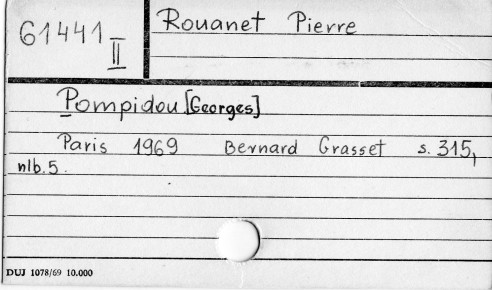 61441
II
Rouanet Pierre
Pompidou [Georges]
Paris 1969 Bernard Grasset s. 315,
nlb. 5.
DUJ 1078/69 10.000